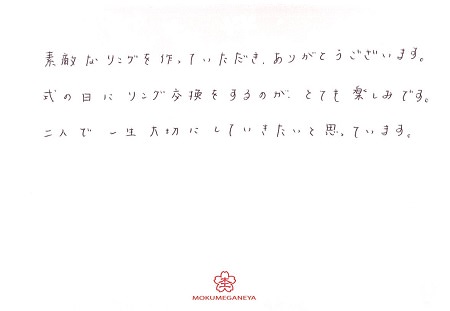 素敵なリングを作っていただき、ありがとうございます。
式の日にリング交換をするのが、とても楽しみです。
二人で一生大切にしていきたいと思っています。
杢
MOKUMEGANEYA